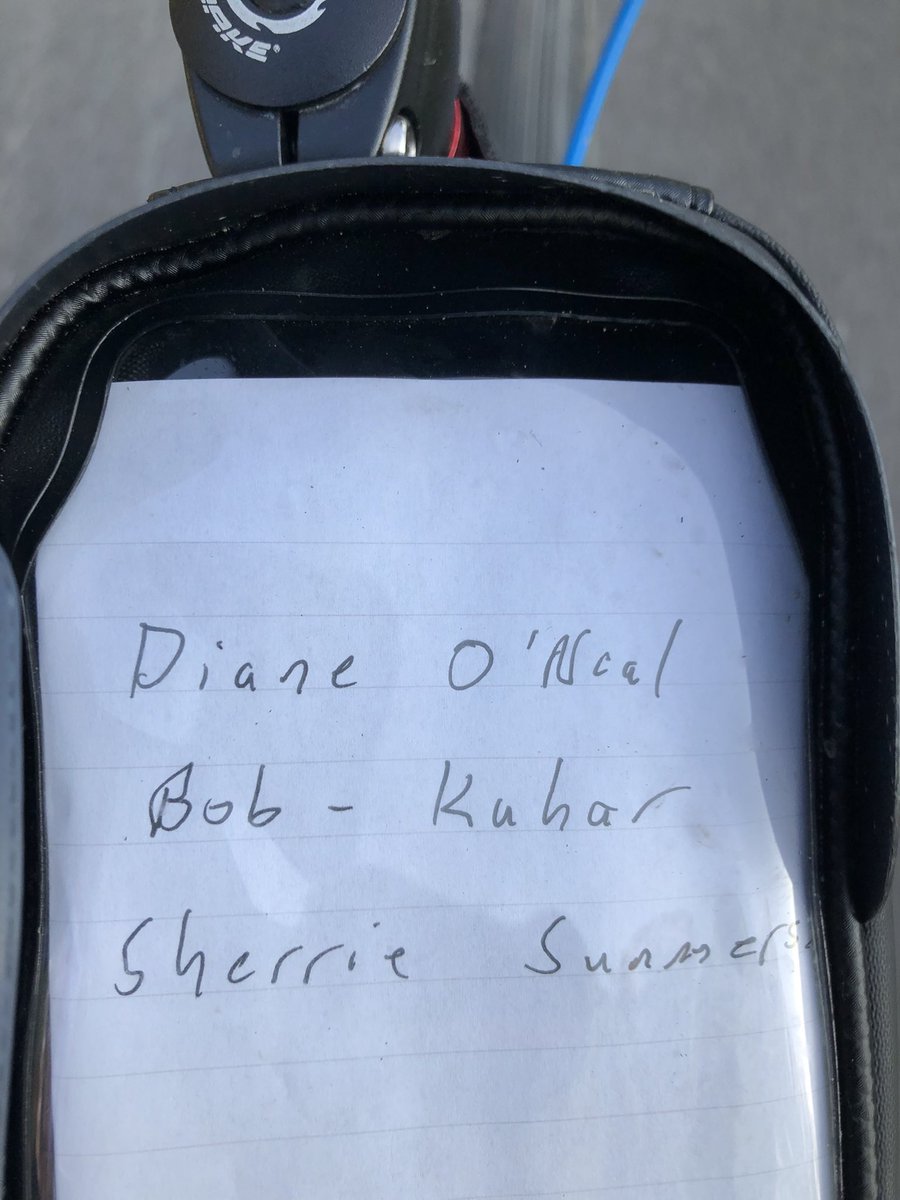 Diane O'Neal
Bob - Kuhar
Sherrie Summers